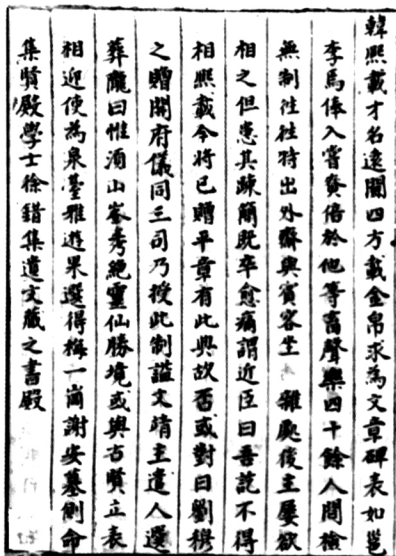 韓熙載才名遠聞四方載金帛求為文章碑表如邕
李馬俸入嘗賫倍於他等畜聲樂四十餘人閒檢
無制往往時出外齋與賓客坐 雜處後主屢欲
相之但患其疎簡既卒愈痛謂近臣曰吾訖不得
相熙載今將已贈平章有此典故否或對曰劉穆
之贈開府儀同三司乃授此制諡文靖主遣人選
葬隴曰惟須山峯秀絕靈仙勝境或與古賢立表
相迎使為泉臺雅遊果選得梅一崗謝安墓側命
集賢殿學士徐鍇集遺文藏之書殿